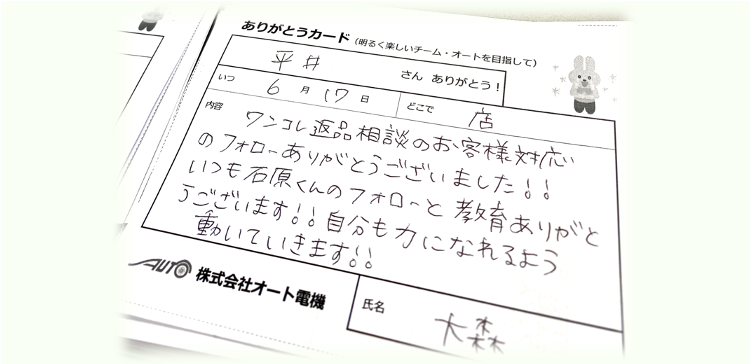 ありがとうカード（明るく楽しいチーム・オートを目指して）
平井 さん ありがとう！
いつ 6 月 17 日 どこで 店
内容
ワンコレ返品相談のお客様対応
のフォローありがとうございました！！
いつも石原くんのフォローと教育ありがと
うございます！！自分も力になれるよう
動いていきます！！
AUTO 株式会社オート電機
氏名 大森